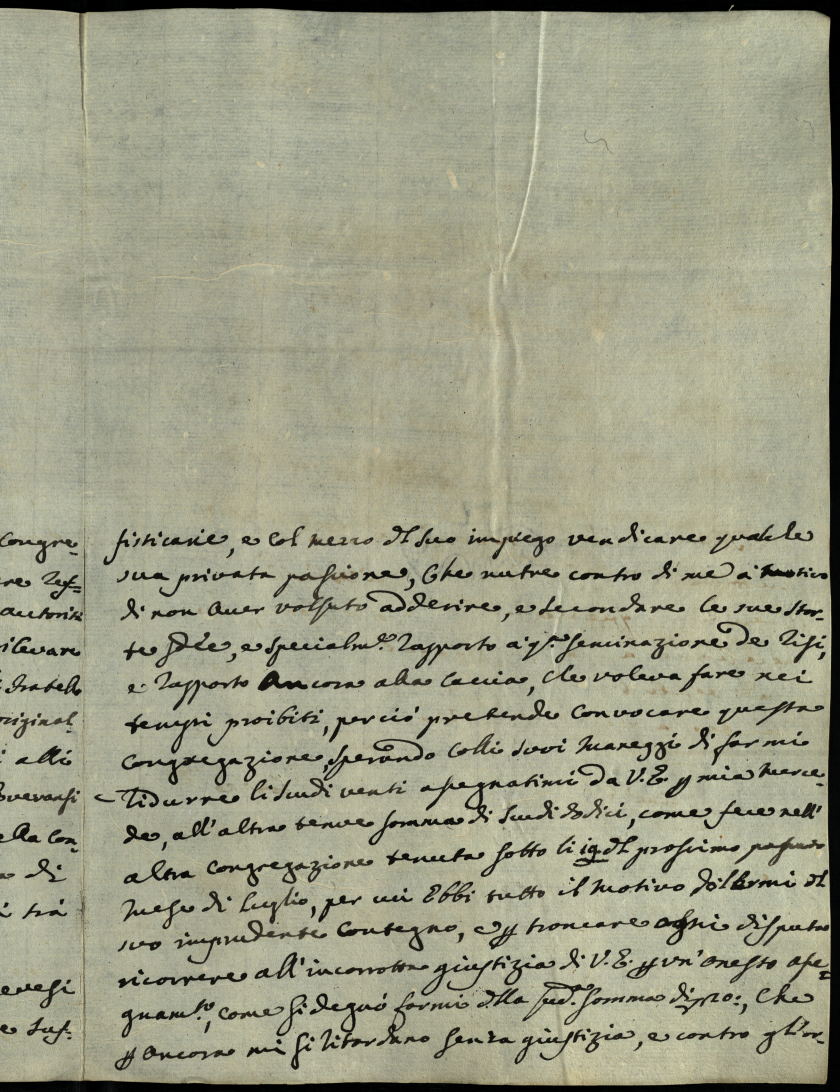 Congre-
fisticarie, e col mezzo dl suo impiego vendicare qualche
sua privata passione, che nutre contro di me à motivo
autorità
di non aver volsuto adderire, e secondare le sue stor-
rilevare
te Idee, e specialmte. rapporto à qsta. seminazione de Risi,
fratello
e rapporto Ancora alla Caccia, che voleva fare nei
original-
tempi proibiti, perciò pretende convocare questa
i alli
congregazione, sperando colli suoi maneggi di farmi
ridurre li scudi venti assegnatimi da V. E. p mia merce-
ella Con-
de, all'altra tenue somma di scudi dodici, come fece nell'
di
altra congregazione tenuta sotto li 19 dl prossimo passato
i trà
Mese di Luglio, per cui Ebbi tutto il motivo dolermi dl
suo imprudente contegno, e p troncare ogni disputa
ricorrere all'incorrotta giustizia di V. E. p un'onesto asse-
gnamto, come si degnò farmi dlla sudª. somma di 20:, che
p ancora mi si ritardano senza giustizia, e contro gl'or-